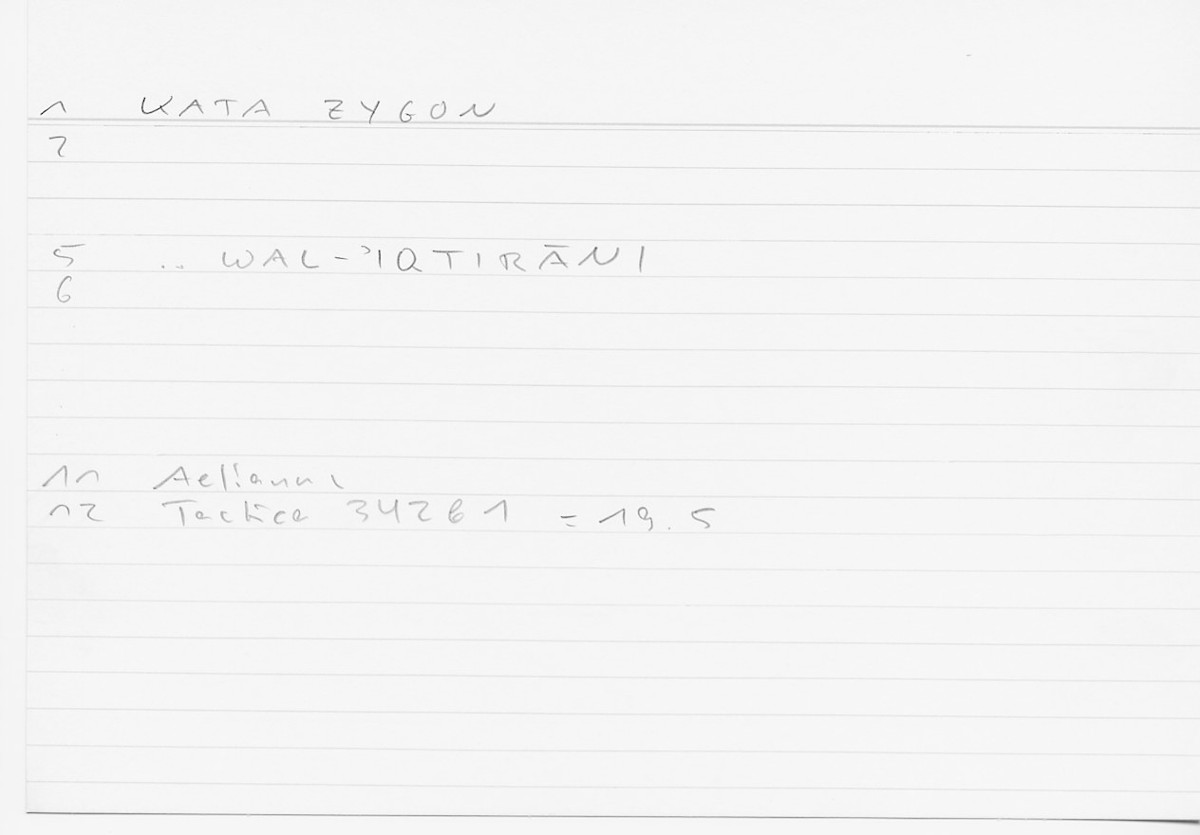 1 KATA ZYGON
2
5 .. WAL-ʾIQTIRĀNI
6
11 Aelianus
12 Tactica 34261 = 19.5